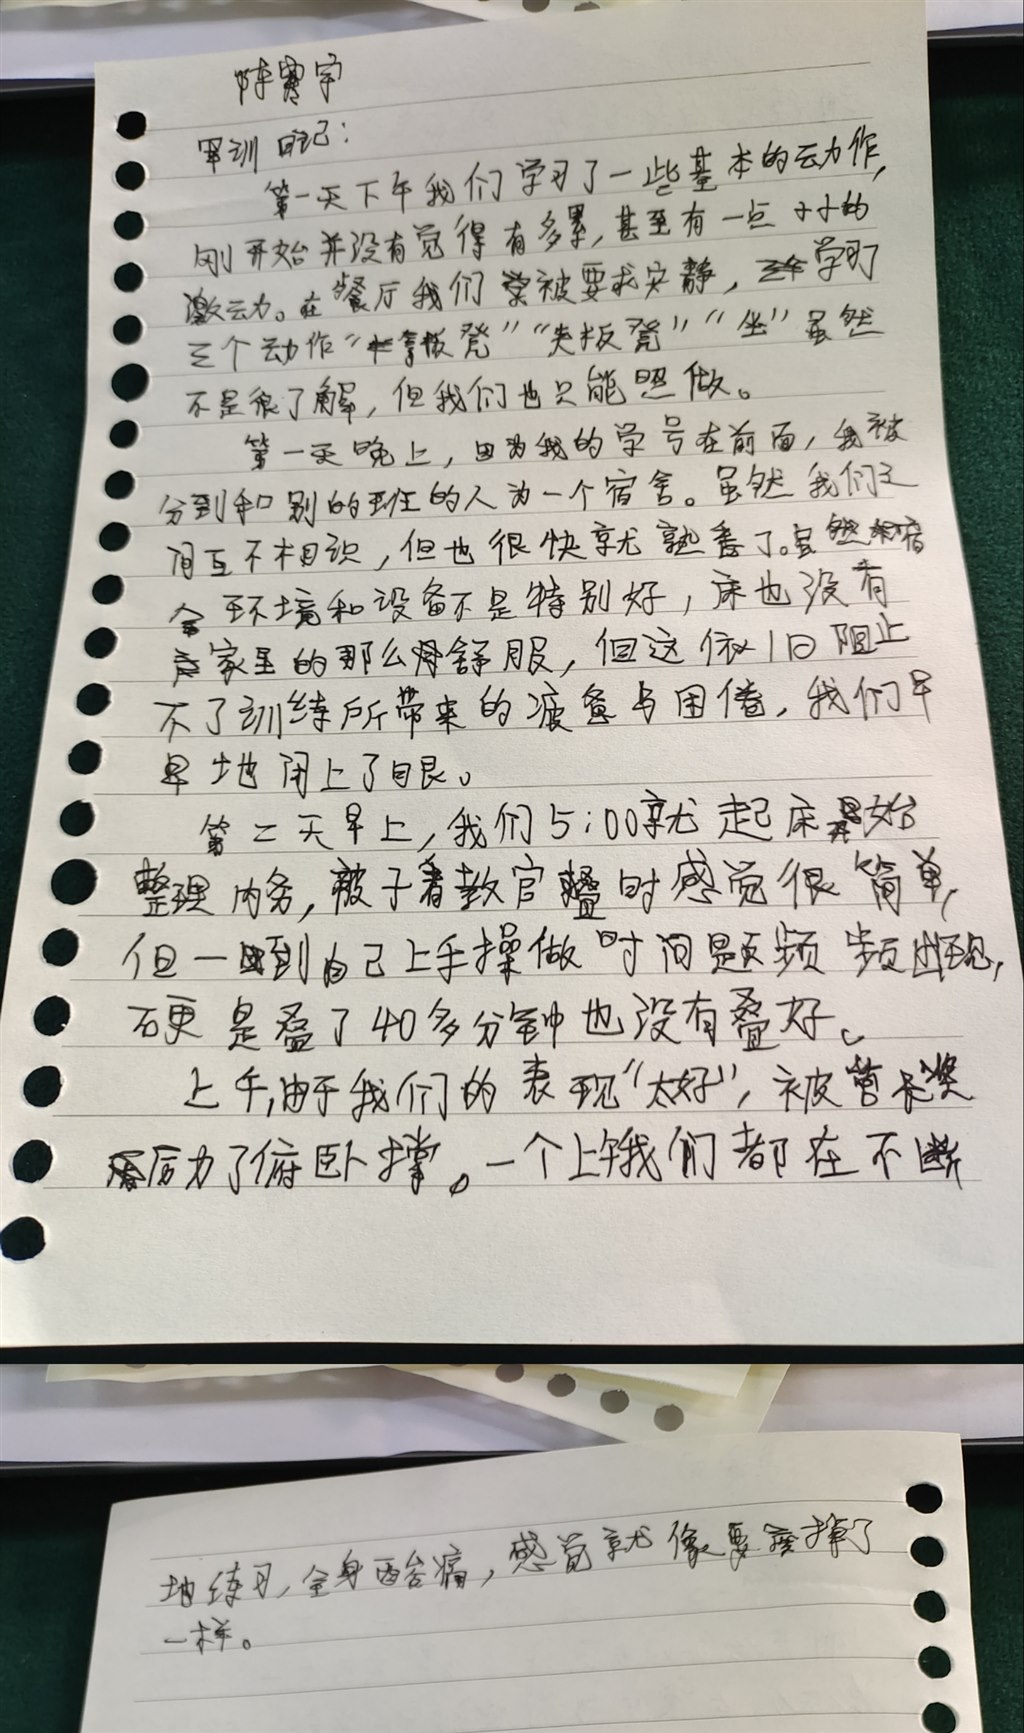 陈赛宇
军训日记：
第一天下午我们学习了一些基本的动作，
刚开始并没有觉得有多累，甚至有一点小小的
激动。在餐厅我们被要求安静，学习了
三个动作“拿板凳”“夹板凳”“坐”虽然
不是很了解，但我们也只能照做。
第一天晚上，因为我的学号在前面，我被
分到和别的班的人为一个宿舍。虽然我们之
间互不相识，但也很快就熟悉了。虽然宿
舍环境和设备不是特别好，床也没有
家里的那么舒服，但这依旧阻止
不了训练所带来的疲惫与困倦，我们早
早地闭上了眼。
第二天早上，我们5:00就起床开始
整理内务，被子看教官叠时感觉很简单，
但一到自己上手操做时问题频频出现，
硬是叠了40多分钟也没有叠好。
上午，由于我们的表现“太好”，被营长奖
励了俯卧撑。一个上午我们都在不断
地练习，全身酸痛，感觉就像要掉了
一样。